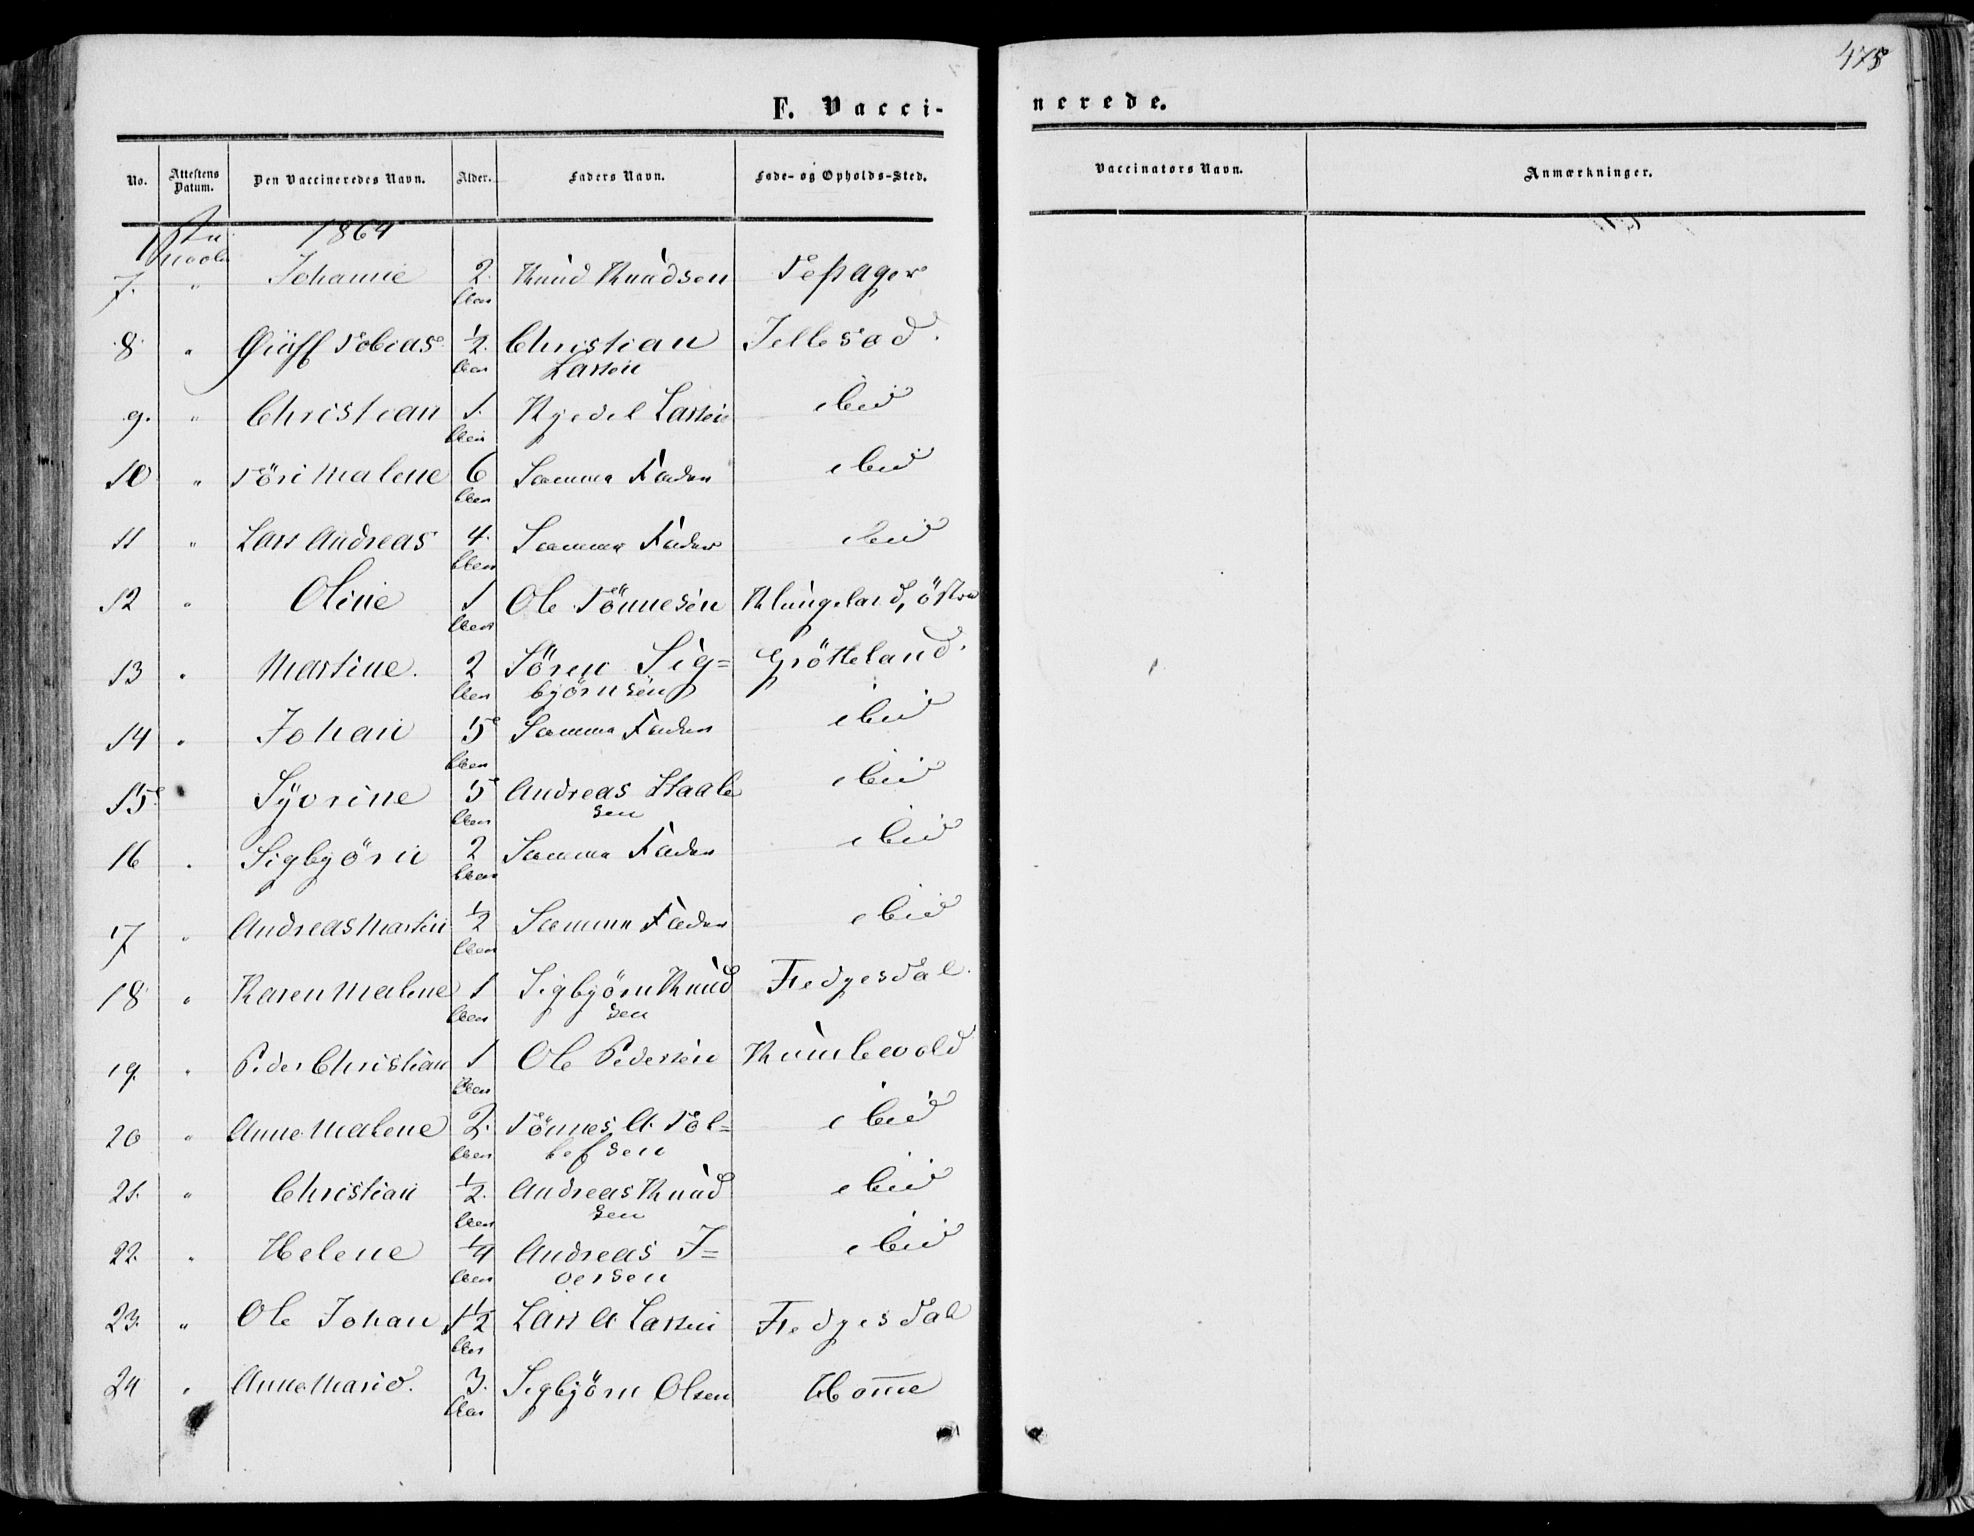 475
F. Vacci-
nerede.
No. Attestens Datum. Den Vaccineredes Navn. Alder. Faders Navn. Føde- og Opholds-Sted. Vaccinators Navn. Anmærkninger.
1864
7. " Johanne 2 Knud Knudsen
8 " Tobias ½ Christian Larsen
9. " Christian 1. Kjedel Larsen ibid
10 " Malene 6 Samme Fader ibid
11 " Lars Andreas 4. Samme Fader ibid
12 " Oline 1 Ole Tönnesen Klungeland, östre
13 " Martine. 2 Sören Sig=
björnsen Grötteland.
14 " Johan 5 Samme Fader ibid
15 " Syvrine 5 Andreas Staale
sen ibid
16 " Sigbjörn 2 Samme Fader ibid
17 " Andreas Martin ½ Samme Fader ibid
18 " Karen Malene 1 Sigbjörn Knud
sen Fredgesdal
19. " Peder Christian 1 Ole Pedersen
20 " Anne Malene 2. Tönnes A. Tol=
lefsen ibid
21. " Christian ½ Andreas Knud
sen ibid
22. " Helene ¼ Andreas I=
versen ibid
23. " Ole Johan 1½ Lars A Larsen Fredgesdal
24 " Anne Marie. 3. Sigbjörn Olsen Homme